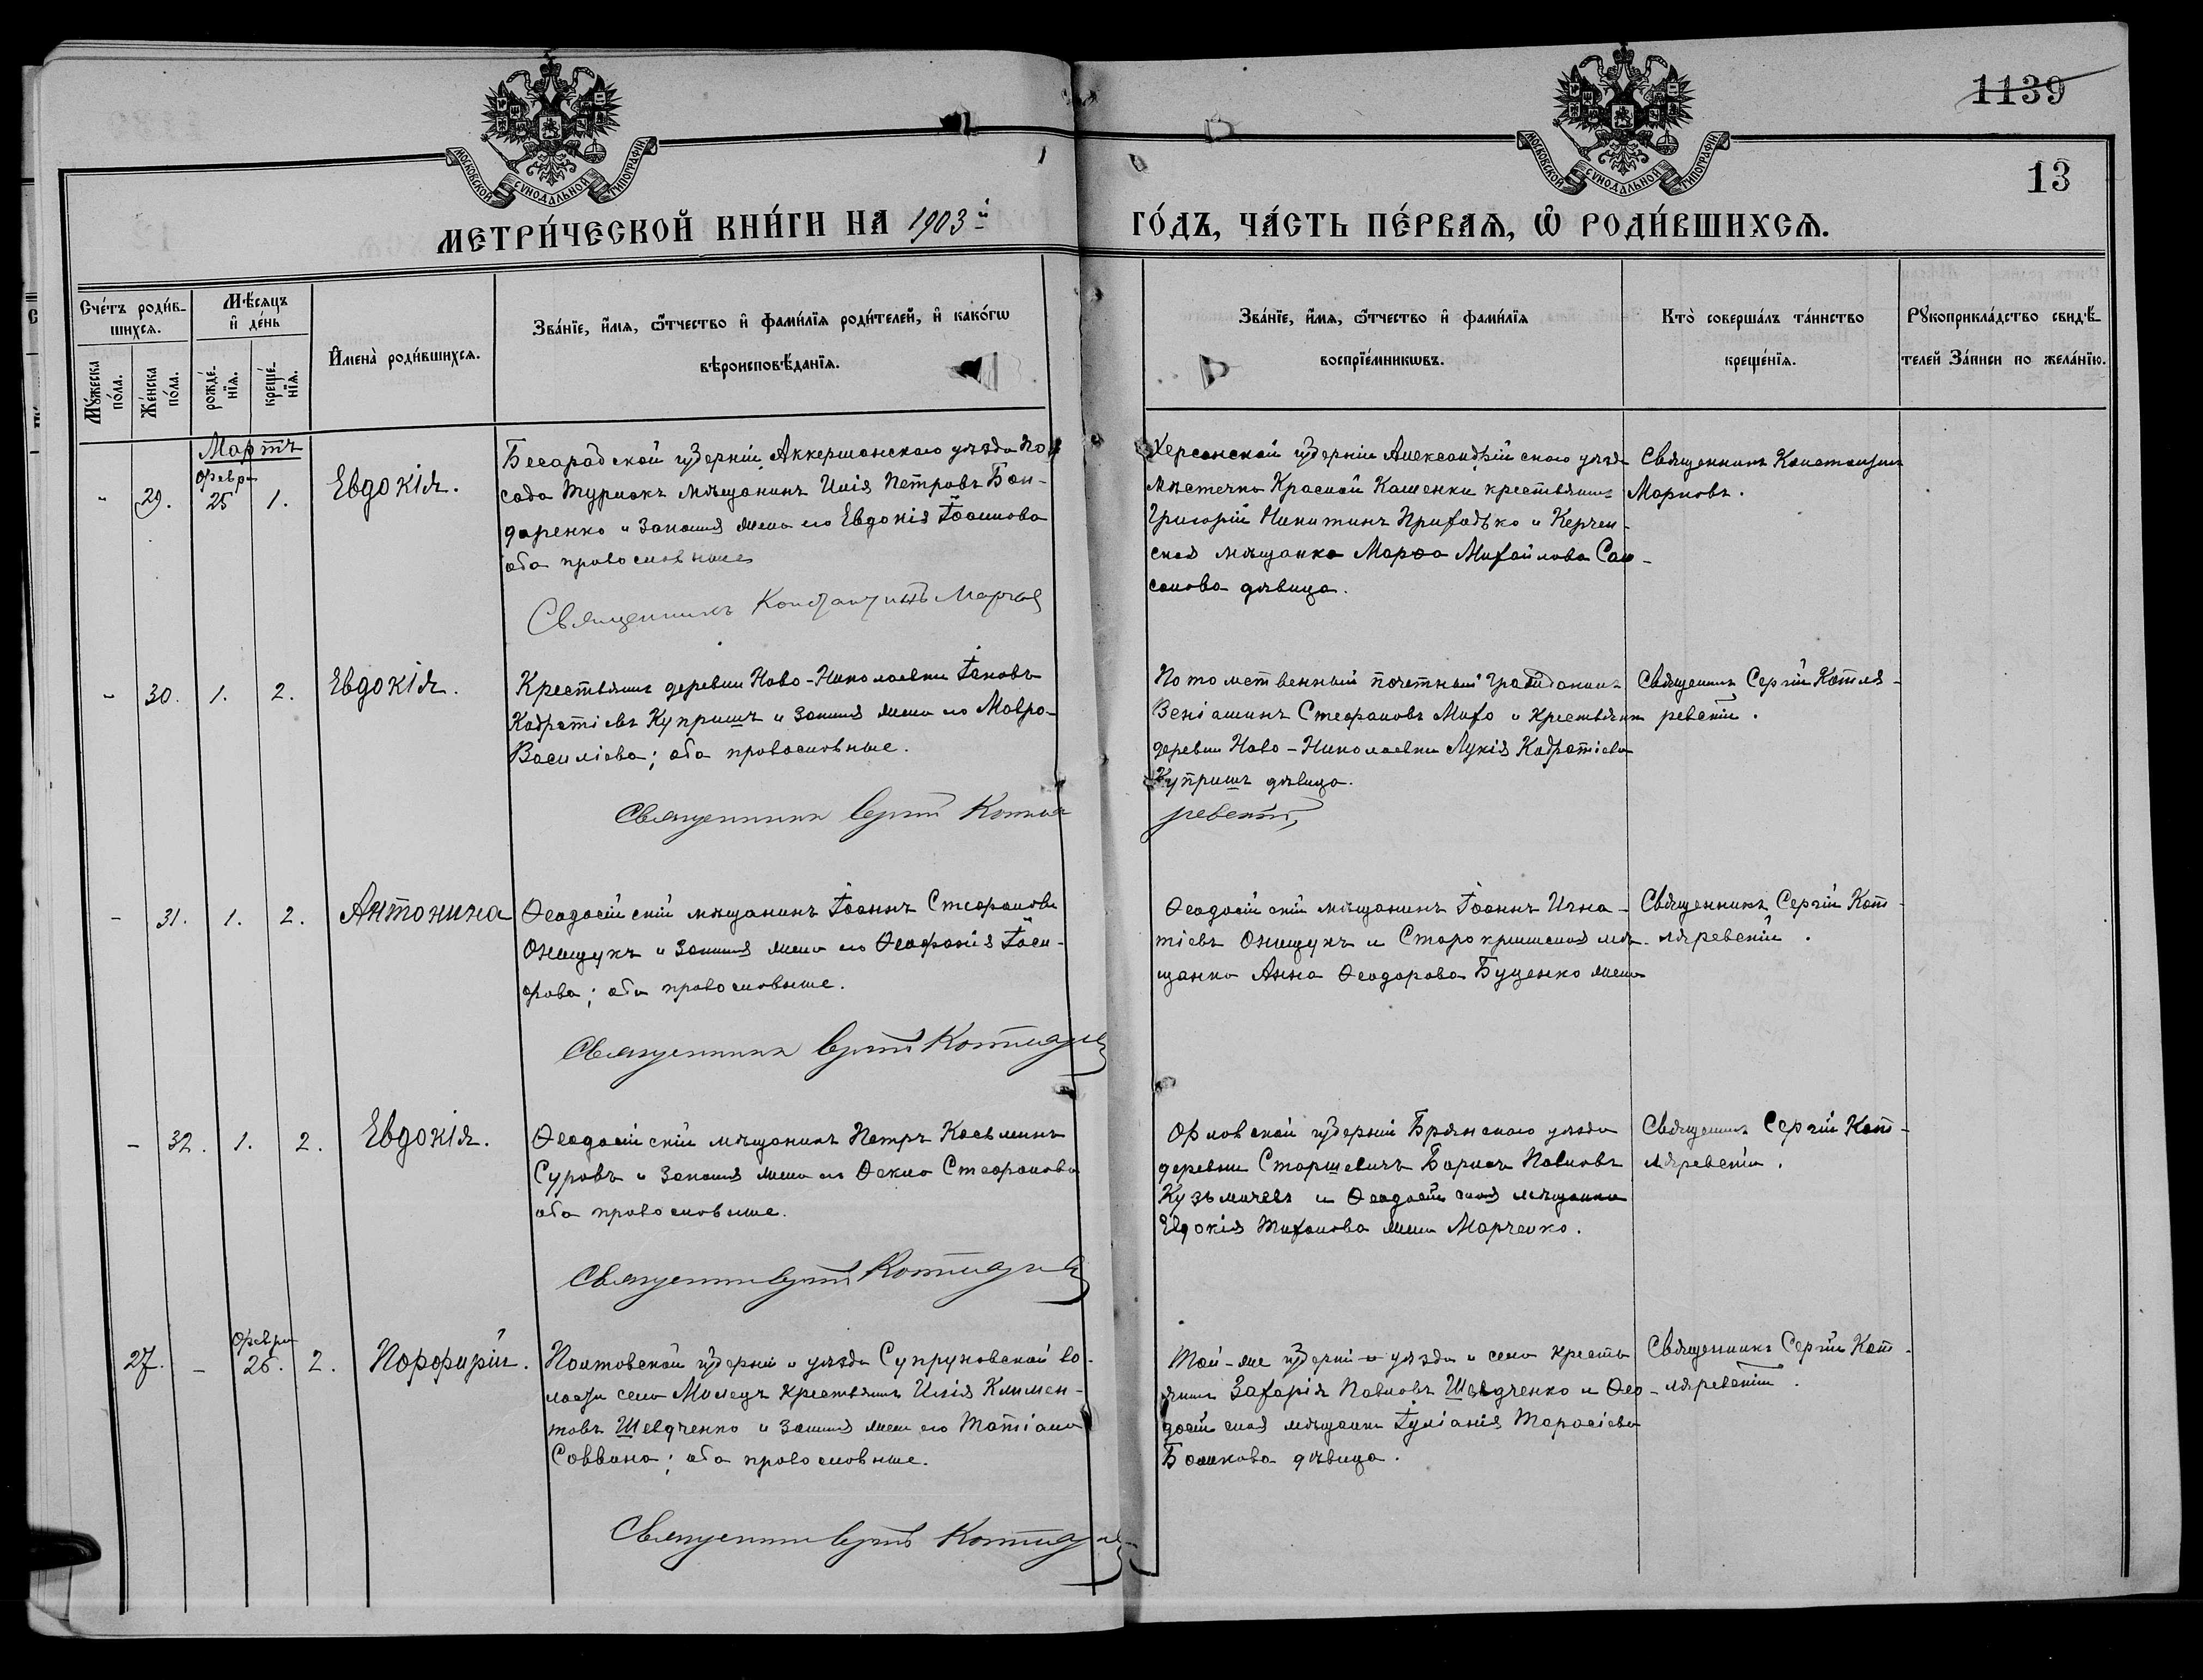 1139
13
МОСКОВСКОЙ СѴНОДАЛЬНОЙ ТИПОГРАФІИ
МОСКОВСКОЙ СѴНОДАЛЬНОЙ ТИПОГРАФІИ
МЕТРИ́ЧЕСКОЙ КНИ́ГИ НА 1903й
ГО́ДЪ, ЧА́СТЬ ПЕ́РВАѦ, Ѡ҆ РОДИ́ВШИХСѦ.
Сче́тъ роди́в-
шихсѧ.
Мꙋ́жеска по́ла.
Же́нска по́ла.
Мѣ́сѧцъ
и҆ де́нь
рожде́-
нїѧ.
креще́-
нїѧ.
И҆мена̀ роди́вшихсѧ.
Зва́нїе, и҆́мѧ, ѻ҆́тчество и҆ фами́лїѧ роди́телей, и҆ како́гѡ
вѣроисповѣ́данїѧ.
Зва́нїе, и҆́мѧ, ѻ҆́тчество и҆ фами́лїѧ
воспрїе́мникѡвъ.
Кто̀ соверша́лъ та́инство
креще́нїѧ.
Рꙋкоприкла́дство свидѣ́-
телей За́писи по жела́нїю.
Мартъ
- 29. Февр. 25 1. Евдокія.
Бесарабской губерніи, Аккерманскаго уѣзда по
сада Турлакъ мѣщанинъ Илія Петровъ Бон-
даренко и законная жена его Евдокія Іоаннова
оба православные
Священникъ Константинъ Марковъ
Херсонской губерніи Александрійскаго уѣзда
мѣстечка Красной Каменки крестьянинъ
Григорій Никитинъ Приходько и Керчен-
ская мѣщанка Марѳа Михайлова Сам-
сонова дѣвица.
Священникъ Константинъ
Марковъ.
- 30. 1. 2. Евдокія.
Крестьянинъ деревни Ново-Николаевки Іаковъ
Кодратіевъ Купришъ и законная жена его Мавра
Василіева; оба православные.
Священникъ Сергій Котля
ревскій
Потомственный почетный гражданинъ
Веніаминъ Стефановъ Михо и крестьянка
деревни Ново-Николаевки Лукія Кодратіева
Купришъ дѣвица.
Священникъ Сергій Котля-
ревскій.
- 31. 1. 2. Антонина
Ѳеодосійскій мѣщанинъ Іоаннъ Стефановъ
Онищукъ и законная жена его Ѳеофанія Іоси-
фова; оба православные.
Священникъ Сергій Котляр
Ѳеодосійскій мѣщанинъ Іоаннъ Игна-
тіевъ Онищукъ и Старокрымская мѣ-
щанка Анна Ѳеодорова Буценко жена
Священникъ Сергій Кот-
ляревскій.
- 32. 1. 2. Евдокія.
Ѳеодосійскій мѣщанинъ Петръ Косьминъ
Суровъ и законная жена его Ѳекла Стефанова
оба православные.
Священникъ Сергій Котляр
Орловской губерніи Брянскаго уѣзда
деревни Старшевичъ Борисъ Павловъ
Кузьмичевъ и Ѳеодосійская мѣщанка
Евдокія Тихонова жена Марченко.
Священникъ Сергій Кот-
ляревскій.
27. - Февр. 26. 2. Порфирій.
Полтавской губерніи и уѣзда Супруновской во-
лости села Мильцъ крестьянинъ Илія Климен-
товъ Шевдченко и законная жена его Татіана
Саввина; оба православные.
Священникъ Сергій Котляр
Той-же губерніи и уѣзда и села кресть
янинъ Захарія Павловъ Шевдченко и Ѳео-
досійская мѣщанка Іуліанія Тарасіева
Божкова дѣвица.
Священникъ Сергій Кот-
ляревскій.